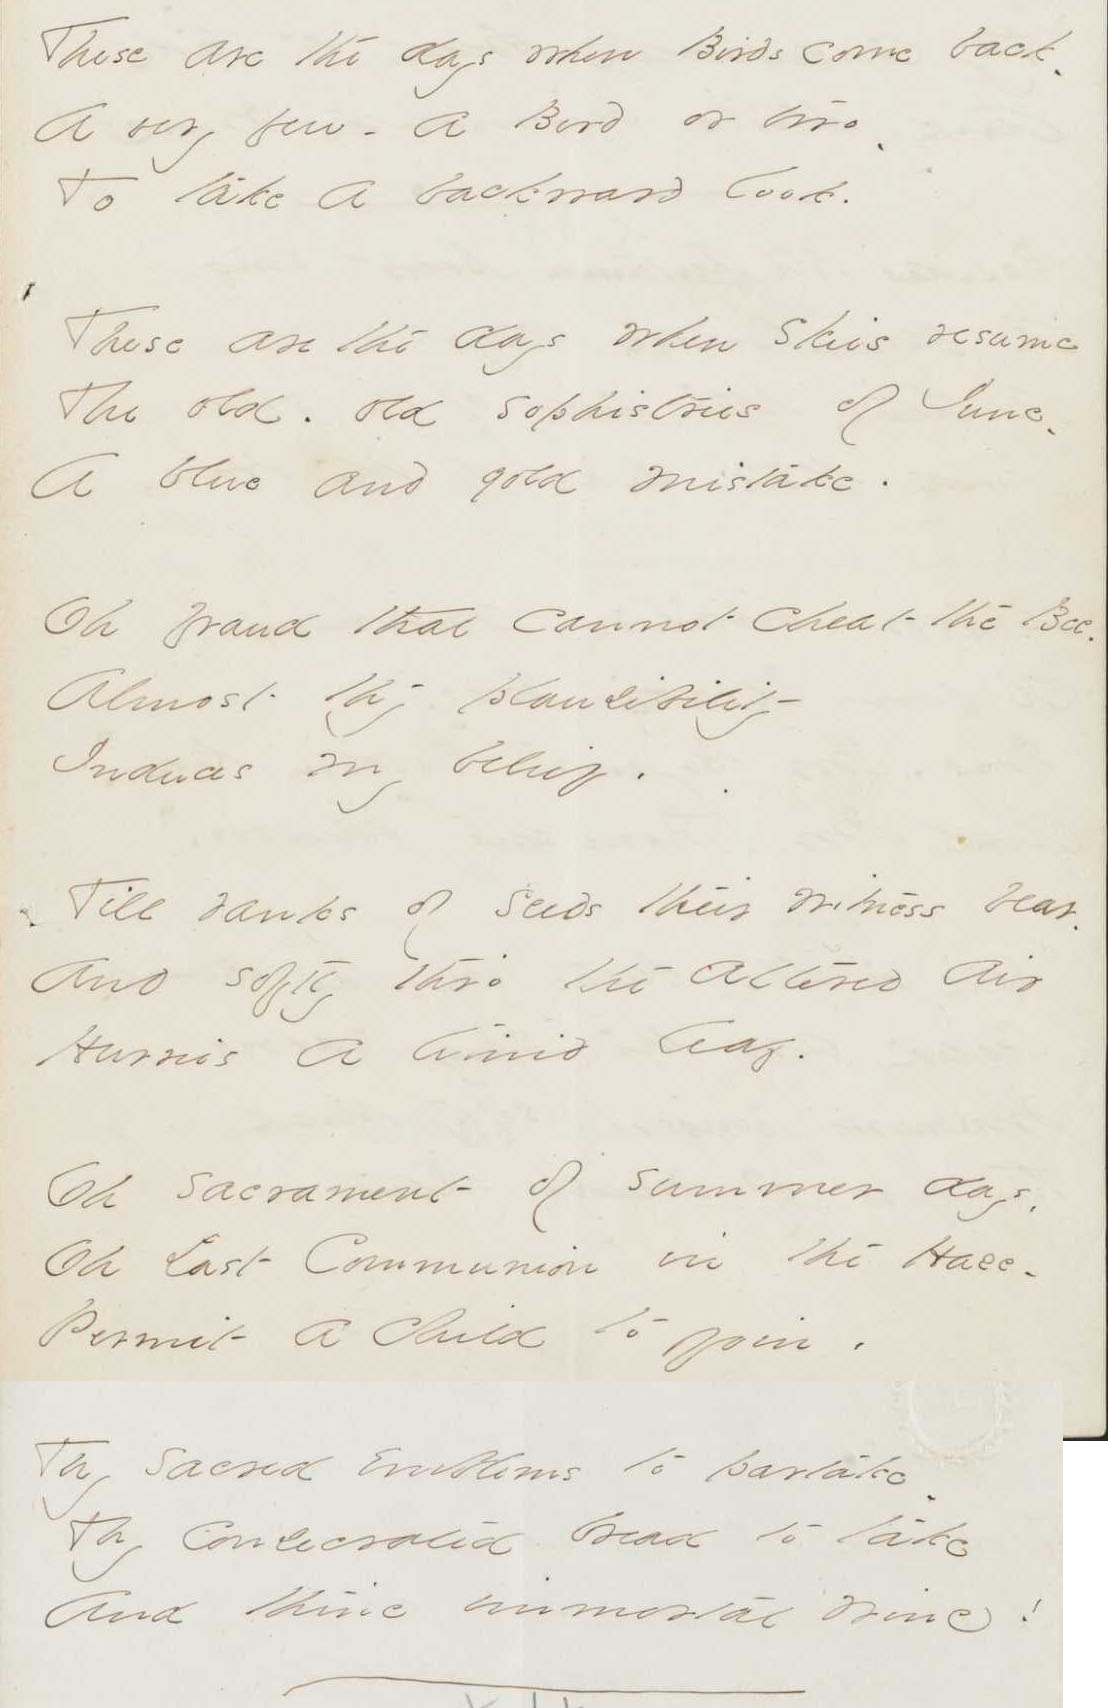 These are the days when Birds come back.
A very few - a Bird or two.
To take a backward look.
These are the days when Skies resume
The old. old sophistries of June.
A blue and gold mistake.
Oh fraud that cannot cheat the Bee.
Almost thy plausibility
Induces my belief.
Till ranks of seeds their witness bear.
And softly thro' the altered air
Hurries a timid leaf.
Oh sacrament of summer days,
Oh Last Communion in the Haze -
Permit a Child to join.
Thy sacred emblems to partake.
Thy consecrated bread to take
And thine immortal wine!